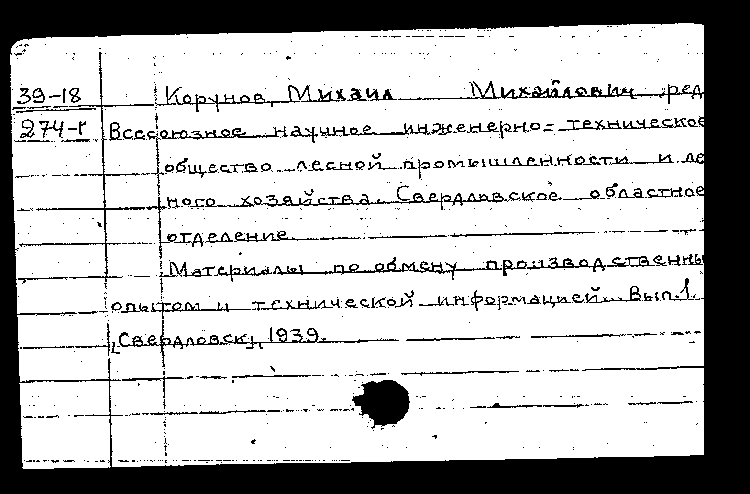 39-18 Корунов, Михаил Михайлович ред
274-г Всесоюзное научное инженерно-техническое
общество лесной промышленности и ле
ного хозяйства. Свердловское областное
отделение.
Материалы по обмену производственны
опытом и технической информацией. Вып.1.
[Свердловск], 1939.